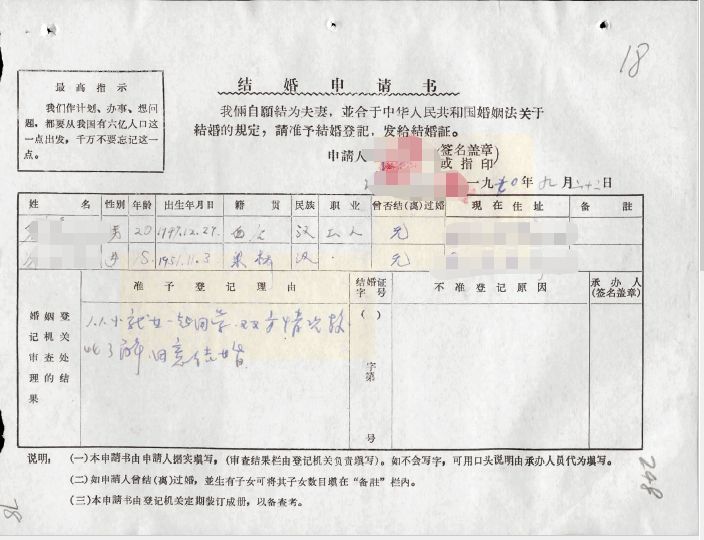 18
最高指示
我们作计划、办事、想问
题，都要从我国有六亿人口这
一点出发，千万不要忘记这一
点。
结婚申请书
我俩自願結为夫妻，並合于中华人民共和国婚姻法关于
結婚的規定，請准予結婚登記，发給結婚証。
申請人
(签名盖章
或指印)
一九七〇年九月二十二日
姓名 性別 年龄 出生年月日 籍贯 民族 职业 曾否结(离)过婚 现在住址 备註
男 20 1949.12.27. 汉 工人 元
女 18 1951.11.3 汉 元
婚姻登记机关审查处理的结果
准予登记理由
结婚证字号
不准登记原因
承办人
(签名盖章)
( )
字
第
号
双方情况
了解 同意结婚
说明：(一)本申請書由申請人据实填写，(审查结果栏由登记机关负责填写)。如不会写字，可用口头说明由承办人员代为填写。
(二)如申請人曾结(离)过婚，並生有子女可将其子女数目填在“备註”栏内。
(三)本申請书由登记机关定期装订成册，以备查考。
248
78